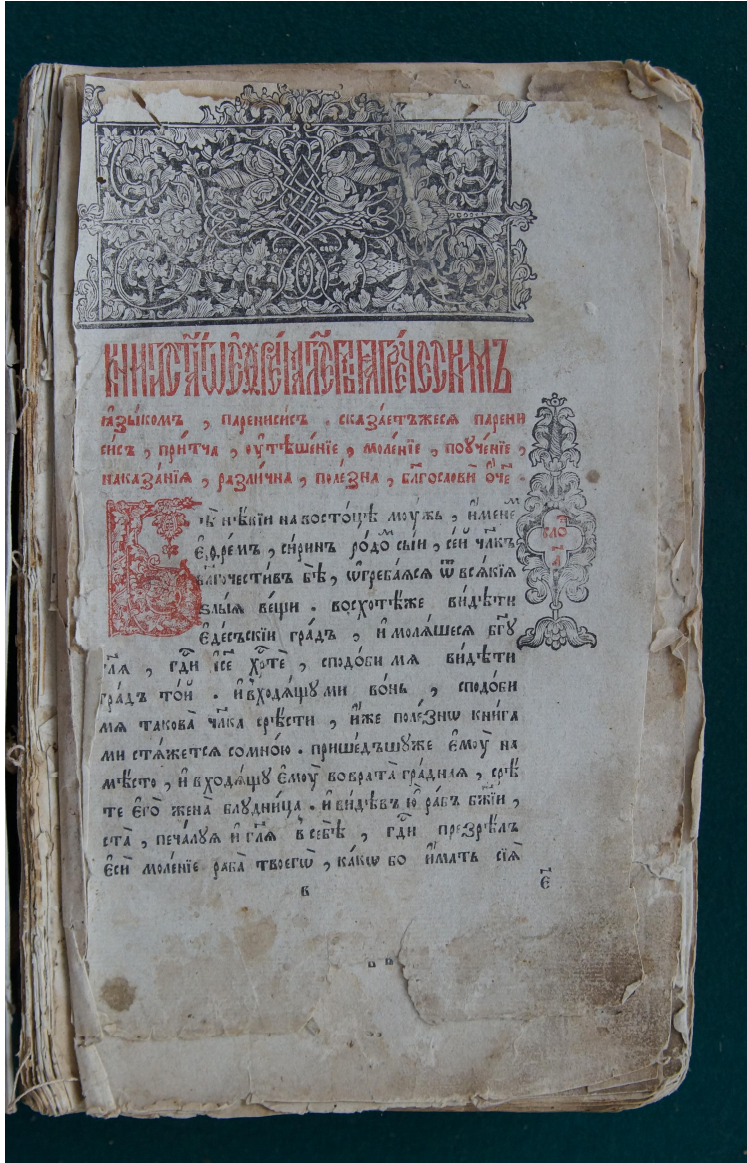 КНИГА СТ҃АГѠ ЕФРЕ́МА ГЛЕ́МАѦ ГРЕ́ЧЕСКИМЪ
ꙗ҆зы́комъ , паренисисъ . сказа́етъжесѧ парени
сисъ , при́тча , ѹ҆тѣше́нїе , моле́нїе , поуче́нїе ,
наказа́нїѧ , разли́чна , поле́зна , бл҃гослови ѻ҆́ч҃е .
Бѣ̀ нѣ́кїи на восто́цѣ мѹ́жь , и҆́менеⷨ
Е҆фре́мъ , си́ринъ ро́домъ сы́и , се́й чл҃къ
бл҃гочести́въ бѣ̀ , ѡ҆греба́ѧсѧ ѿ всѧ́кїѧ
ѕлы́ѧ ве́щи . восхотѣ́же ви́дѣти
Е҆де́съскїи гра́дъ , и҆ молѧ́шесѧ бг҃ꙋ
гл҃ѧ , гд҃и і҆се хрⷭ҇тѐ , сподо́би мѧ ви́дѣти
гра́дъ то́й . и҆ входѧ́щꙋ ми во́нь , сподо́би
мѧ такова̀ чл҃ка срѣ́сти , и҆́же поле́знѡ кни́га
ми стѧ́жетсѧ сомно́ю . прише́дъшꙋже є҆мꙋ̀ на
мѣ́сто , и҆ входѧ́щꙋ є҆мꙋ̀ во врата̀ гра́днаѧ , срѣ́
те є҆го̀ жена̀ блудни́ца . и҆ ви́дѣвъ ю҆̀ ра́бъ бж҃їи ,
ста̀ , печа́луѧ и҆ гл҃ѧ в себѣ̀ , гд҃и презрѣ́лъ
є҆сѝ моле́нїе раба̀ твоегѡ̀ , ка́кѡ бо и҆́мать сїѧ̀
сло
а҃
в
є҃